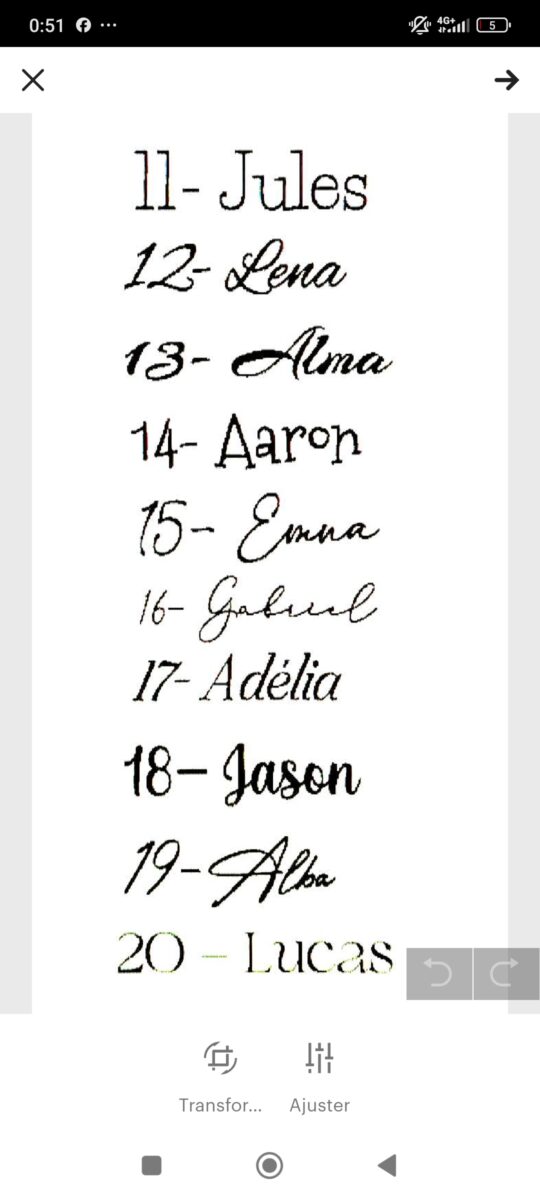 0:51
4G+
5
11- Jules
12- Lena
13- Alma
14- Aaron
15- Emna
16- Gabriel
17- Adélia
18- Jason
19- Alba
20 - Lucas
Transfor... Ajuster